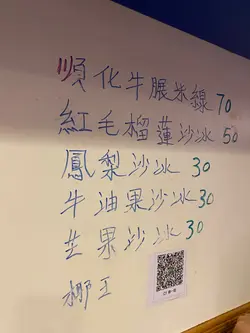 順化牛腱米線70
紅毛榴蓮沙冰50
鳳梨沙冰30
牛油果沙冰30
芒果沙冰30
椰王